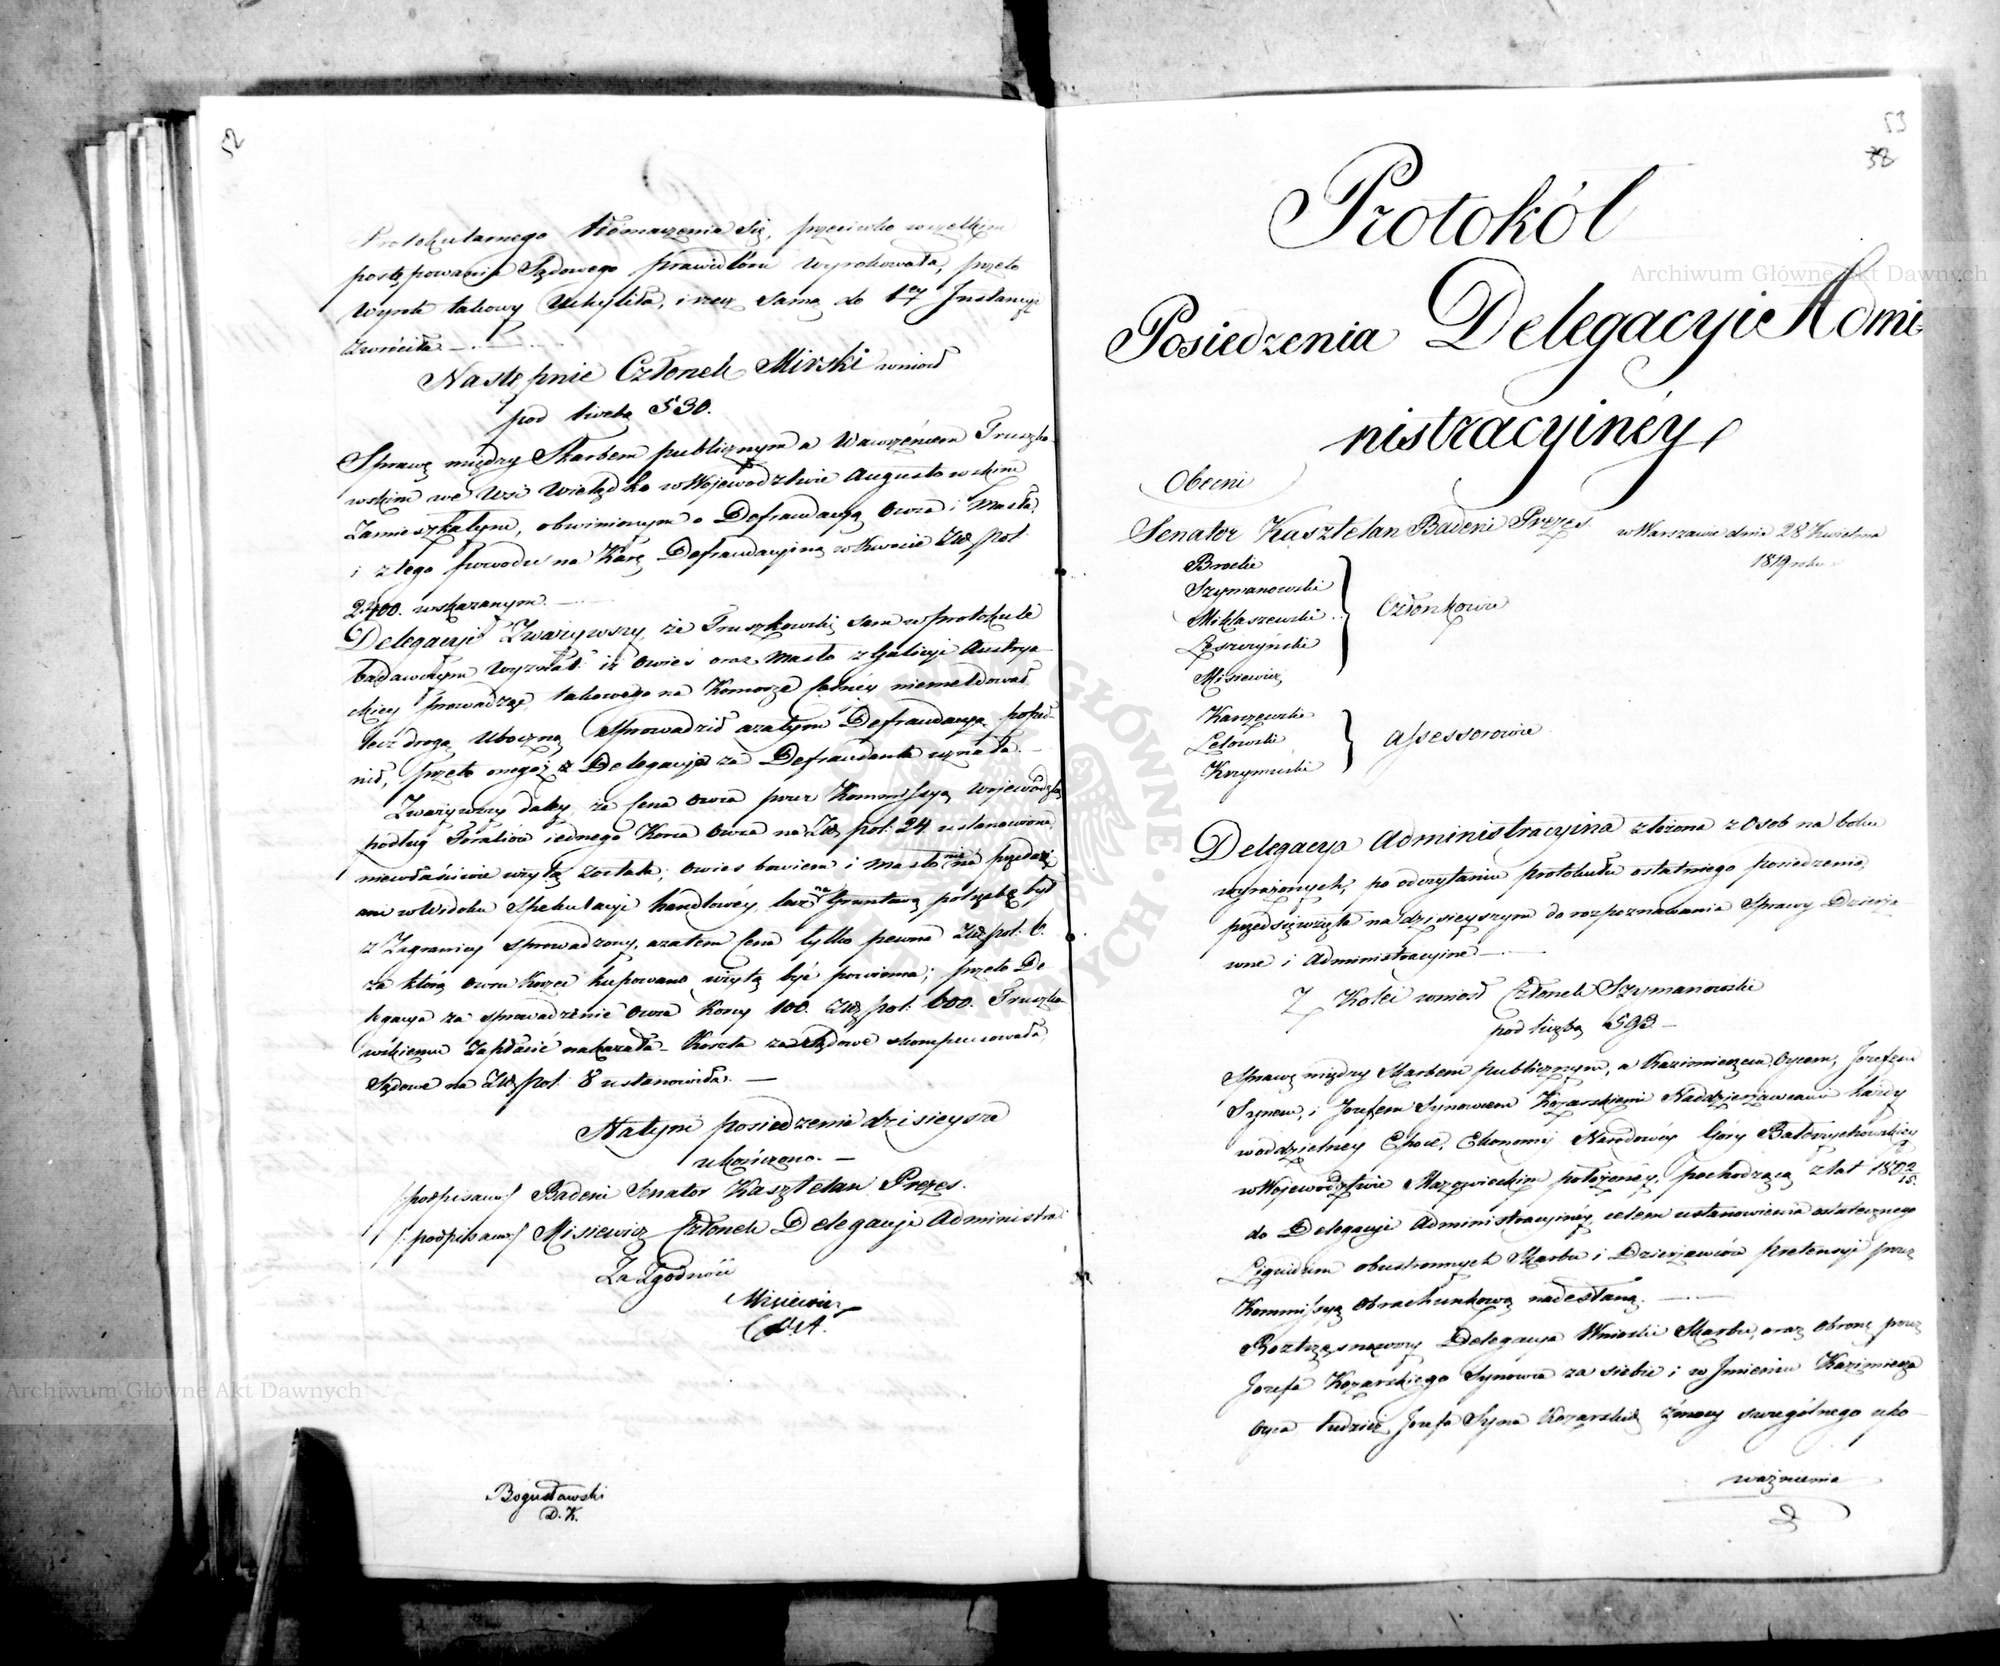 52
Protokularnego tłomaczenia się, przeciwko wszelkim
postępowania Sądowego prawidłom wyrokowała, przeto
wyrok takowy Uchyliła, i rzecz samą do 1ey Instancyi
zwróciła
Następnie Członek Mirski wniosł
pod liczbą 530.
Sprawę między Skarbem publicznym a Wawrzeńcem Truszko-
wskim we Wsi w Wojewodztwie Augustowskim
Zamieszkałym, obwinionym o Defraudacyą Owsa i Masła
i z tego powodu na Karę Defraudacyiną w kwocie Złł pol:
2400. wskazanym.
Delegacyja Zważywszy, że Truszkowski sam w protokule
badawczym wyznał iż Owies oraz Masło z Galicyi Austrya-
ckiey prowadząc, takowego na Komorze Celnéy niemeldował
lecz drogą uboczną sprowadził a zatym Defraudacyą popeł-
nił, przeto onegoż Delegacyja za Defraudanta uznała.
Zważywszy daley że Cena Owsa przez Kommissyą Wojewódzką
podług iednego Korca Owsa na Złł pol: 24. ustanowiona,
niewłaściwie wziętą została; Owies bowiem i Masło nie na przedaż
ani w Widoku Spekulacyi handlowéy, lecz na Gruntową potrzebę był
z Zagranicy sprowadzony, a zatem Cena tylko pewna Złł pol: 6.
za którą Owsa Korzec kupowano wziętą być powinna; przeto De-
legacya za sprowadzenie Owsa Korcy 100. Złł pol: 600. Truszko-
wskiemu Zapłacić nakazała – Koszta zasądowe skompensowała,
Sądowe na Złł pol: 8 ustanowiła.
Na tym posiedzenie dzisieysze
ukończono.
/:podpisano:/ Badeni Senator Kasztelan Prezes.
/:podpisano:/ Misiewicz Członek Delegacyi Administra:
Za Zgodność
Misiewicz
Bogusławski
D. K.
53
38
Protokół
Posiedzenia Delegacyi Admi-
nistracyinéy
Obecni
Senator Kasztelan Badeni Prezes.
w Warszawie dnia 28 Kwietnia
1819 roku
Brocki
Szymanowski
Miklaszewski
Leszczyński
Misiewicz
Członkowie
Karczewski
Lelowski
Krzymuski
Assessorowie
Delegacya Administracyina złożona z Osob na boku
wyrażonych, po odczytaniu protokułu ostatniego posiedzenia,
przedsięwzięła na dzisieyszym do rozpoznawania Sprawy Dzierża-
wne i Administracyine
Z Kolei wniosł Członek Szymanowski
pod liczbą 593
Sprawę między Skarbem publicznym, a Kazimierzem Oycem, Jozefem
Synem, i Jozefem Synowcem Kozarskiemi Naddzierżawcami każdy
w oddzielney Epoce, Ekonomij Narodowéy Góry
w Wojewodztwie Mazowieckim położonéy, pochodzącą z lat 180 2/15.
do Delegacyi Administracyinéy celem ustanowienia ostatecznego
Liquidum obustronnych Skarbu i Dzierżawców pretensyi przez
Kommissyą Obrachunkową nadesłaną.
Roztrząsnąwszy Delegacya Wnioski Skarbu, oraz Obronę przez
Jozefa Kozarskiego Synowca za siebie i w Jmieniu Kazimierza
Oyca tudzież Jozefa Syna Kozarskich z mocy szczególnego upo-
ważnienia
Archiwum Główne Akt Dawnych
Archiwum Główne Akt Dawnych